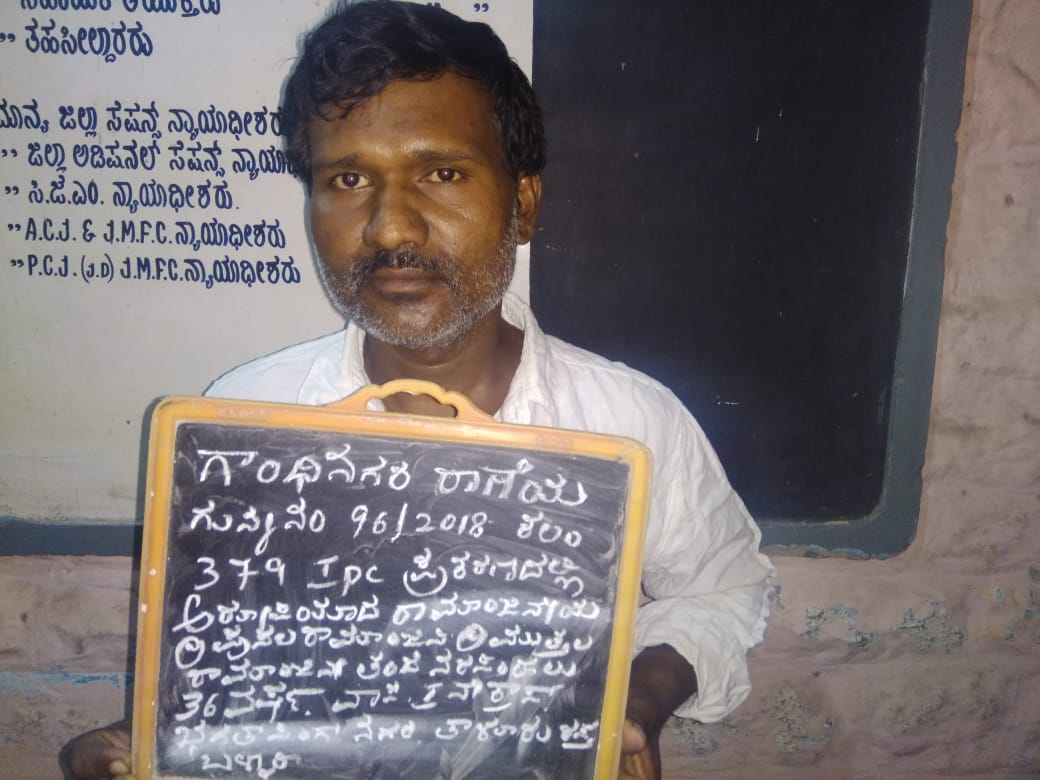 ಸಹಾಯಕ ಆಯುಕ್ತರು ”
” ತಹಸೀಲ್ದಾರರು
ಮಾನ್ಯ ಜಿಲ್ಲಾ ಸೆಷನ್ಸ್ ನ್ಯಾಯಾಧೀಶರು
” ಜಿಲ್ಲಾ ಅಡಿಷನಲ್ ಸೆಷನ್ಸ್
” ಸಿ.ಜೆ.ಎಂ. ನ್ಯಾಯಾಧೀಶರು.
” A.C.J. & J.M.F.C. ನ್ಯಾಯಾಧೀಶರು
” P.C.J. (J.D) J.M.F.C. ನ್ಯಾಯಾಧೀಶರು
ಗಾಂಧಿನಗರ ಠಾಣೆಯ
ಗುನ್ನೆ ನಂ 96/2018 ಕಲಂ
379 Ipc ಪ್ರಕರಣದಲ್ಲಿ
ಆರೋಪಿಯಾದ ರಾಮಾಂಜಿನೇಯ
ರಾಮಾಂಜಿನಿ @
ರಾಮಾಂಜಿನಿ ತಂದೆ ನರಸಿಂಹಲು
36 ವರ್ಷ ವಾಸ
ನಗರ ತಾಳೂರು ರಸ್ತೆ
ಬಳ್ಳಾರಿ